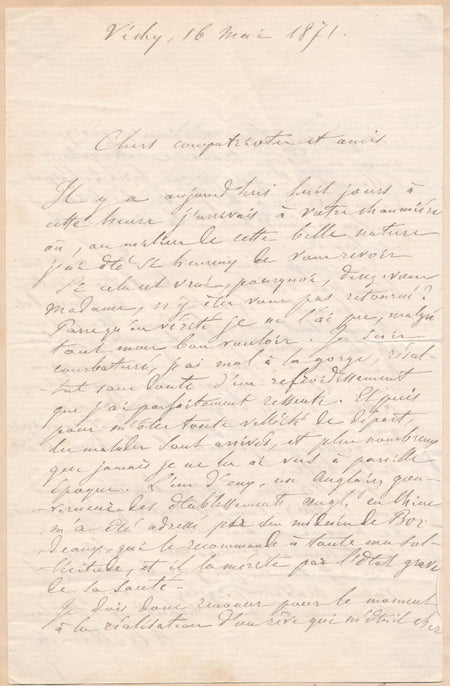 Vichy, 16 Mai 1871.
Chers compatriotes et amis
Il y a aujourd'hui huit jours à
cette heure j'arrivais à votre chaumière
où, au milieu de cette belle nature
j'ai été si heureux de vous revoir
Si cela est vrai, pourquoi, direz vous
Madame, n'y êtes vous pas retourné?
Parcequ'en vérité je ne l'ai pu, malgré
tout mon bon vouloir. Je suis
courbaturé, j'ai mal à la gorge, résul-
-tat sans doute d'un refroidissement
que j'ai parfaitement ressenti. Et puis
pour m'ôter toute velléité de départ,
les malades sont arrivés, et plus nombreux
que jamais je ne les ai vus à pareille
époque. L'un d'eux, un Anglais, gou-
-verneur des établissements angl. en Chine
m'a été adressé par un médecin de Bor-
-deaux, qui le recommande à toute ma sol-
-licitude, et il la mérite par l'état grave
de sa santé.
Je dois donc renoncer pour le moment
à la réalisation d'un rêve qui m'était cher